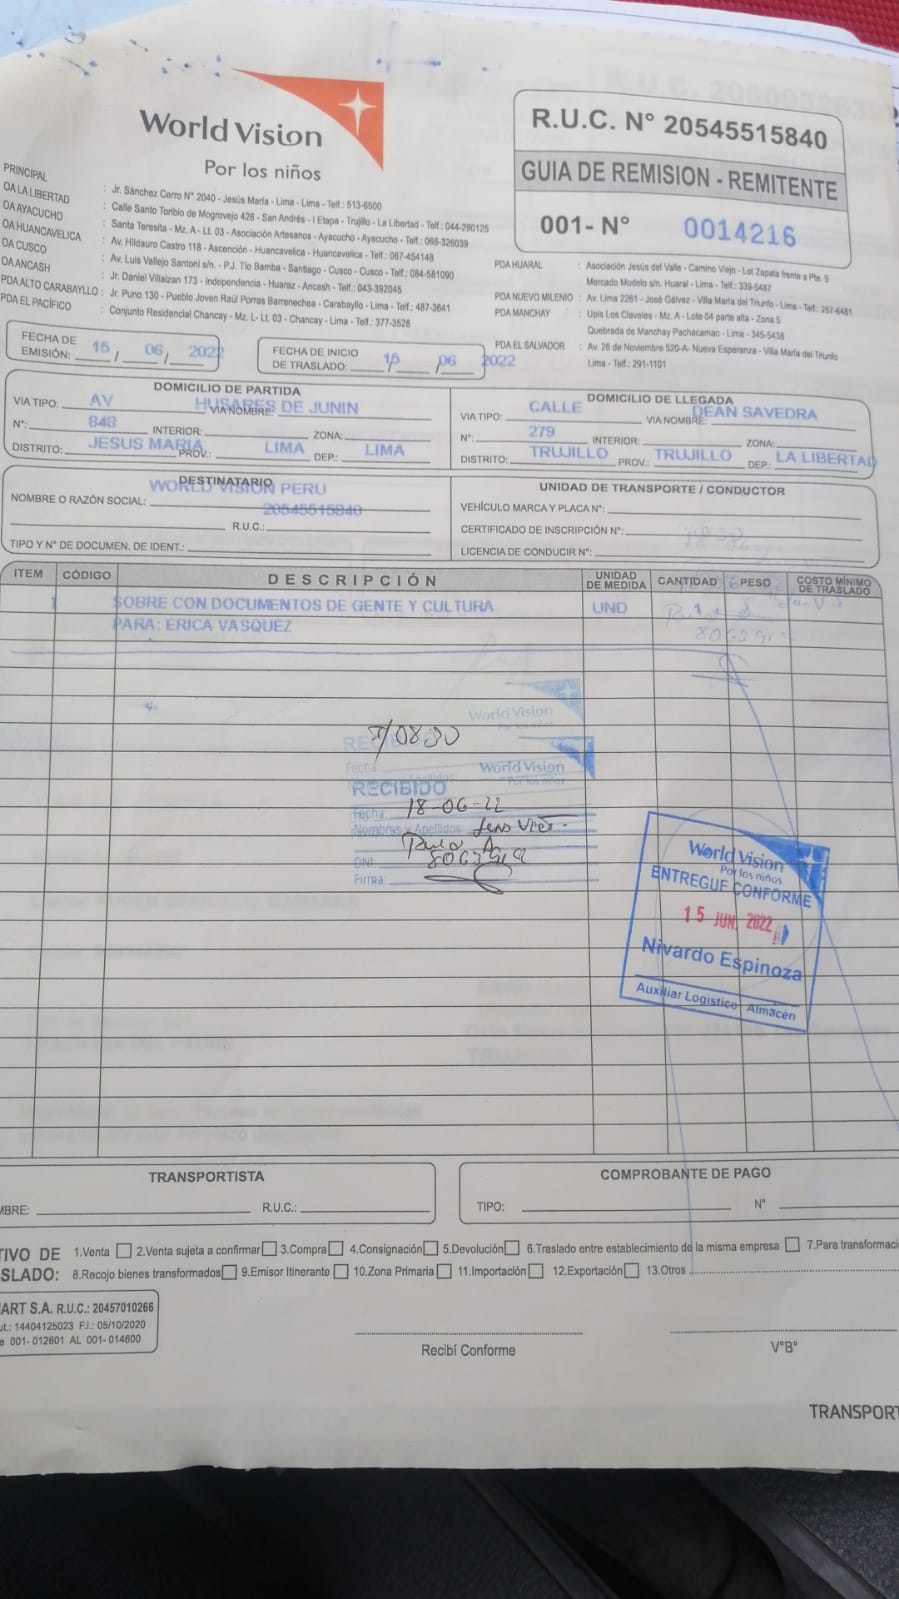 World Vision
Por los niños
R.U.C. N° 20545515840
GUIA DE REMISION - REMITENTE
001- N° 0014216
PRINCIPAL : Jr. Sánchez Cerro N° 2040 - Jesús María - Lima - Lima - Telf.: 513-6500
OA LA LIBERTAD : Calle Santo Toribio de Mogrovejo 426 - San Andrés - I Etapa - Trujillo - La Libertad - Telf: 044-290125
OA AYACUCHO : Santa Teresita - Mz. A - Lt. 03 - Asociación Artesanos - Ayacucho - Ayacucho - Telf: 066-326039
OA HUANCAVELICA : Av. Hildauro Castro 118 - Ascención - Huancavelica - Huancavelica - Telf.: 067-454148
OA CUSCO : Av. Luis Vallejo Santoni s/n. - P.J. Tío Bamba - Santiago - Cusco - Cusco - Telf.: 084-581090
OA ANCASH : Jr. Daniel Villaizan 173 - Independencia - Huaraz - Ancash - Telf.: 043-392045
PDA ALTO CARABAYLLO : Jr. Puno 130 - Pueblo Joven Raúl Porras Barrenechea - Carabayllo - Lima - Telf.: 487-3641
PDA EL PACÍFICO : Conjunto Residencial Chancay - Mz. L- Lt. 03 - Chancay - Lima - Telf.: 377-3528
PDA HUARAL : Asociación Jesús del Valle - Camino Viejo - Lot Zapata frente a Pte. 5
Mercado Modelo s/n. Huaral - Lima - Telf.: 339-5487
PDA NUEVO MILENIO : Av. Lima 2281 - José Gálvez - Villa María del Triunfo - Lima - Telf.: 257-6481
PDA MANCHAY : Upis Los Claveles - Mz. A - Lote 04 parte alta - Zona 5
Quebrada de Manchay Pachacamac - Lima - 345-5436
PDA EL SALVADOR : Av. 26 de Noviembre 520-A- Nueva Esperanza - Villa María del Triunfo
Lima - Telf.: 291-1101
FECHA DE EMISIÓN: 15 / 06 / 2022
FECHA DE INICIO DE TRASLADO: 15 / 06 2022
DOMICILIO DE PARTIDA
VIA TIPO: AV VIA NOMBRE: HUSARES DE JUNIN
N°: 848 INTERIOR: ZONA:
DISTRITO: JESUS MARIA PROV.: LIMA DEP.: LIMA
DOMICILIO DE LLEGADA
VIA TIPO: CALLE VIA NOMBRE: DEAN SAVEDRA
N°: 279 INTERIOR: ZONA:
DISTRITO: TRUJILLO PROV.: TRUJILLO DEP.: LA LIBERTAD
DESTINATARIO
NOMBRE O RAZÓN SOCIAL: WORLD VISION PERU
R.U.C.: 20545515840
TIPO Y N° DE DOCUMEN. DE IDENT.:
UNIDAD DE TRANSPORTE / CONDUCTOR
VEHÍCULO MARCA Y PLACA N°:
CERTIFICADO DE INSCRIPCIÓN N°:
LICENCIA DE CONDUCIR N°:
ITEM CÓDIGO DESCRIPCIÓN UNIDAD DE MEDIDA CANTIDAD PESO COSTO MÍNIMO DE TRASLADO
1 SOBRE CON DOCUMENTOS DE GENTE Y CULTURA UND 1
PARA: ERICA VASQUEZ
World Vision
World Vision
RECIBIDO
Fecha: 18-06-22
Nombres y Apellidos:
DNI:
Firma:
World Vision
Por los niños
ENTREGUE CONFORME
15 JUN. 2022
Nivardo Espinoza
Auxiliar Logístico Almacén
TRANSPORTISTA
MBRE: R.U.C.:
COMPROBANTE DE PAGO
TIPO: N°
TIVO DE 1.Venta 2.Venta sujeta a confirmar 3.Compra 4.Consignación 5.Devolución 6.Traslado entre establecimiento de la misma empresa 7.Para transformaci
SLADO: 8.Recojo bienes transformados 9.Emisor Itinerante 10.Zona Primaria 11.Importación 12.Exportación 13.Otros
ART S.A. R.U.C.: 20457010266
ut.: 14404125023 F.I.: 05/10/2020
e 001- 012601 AL 001- 014600
Recibí Conforme
V°B°
TRANSPORT